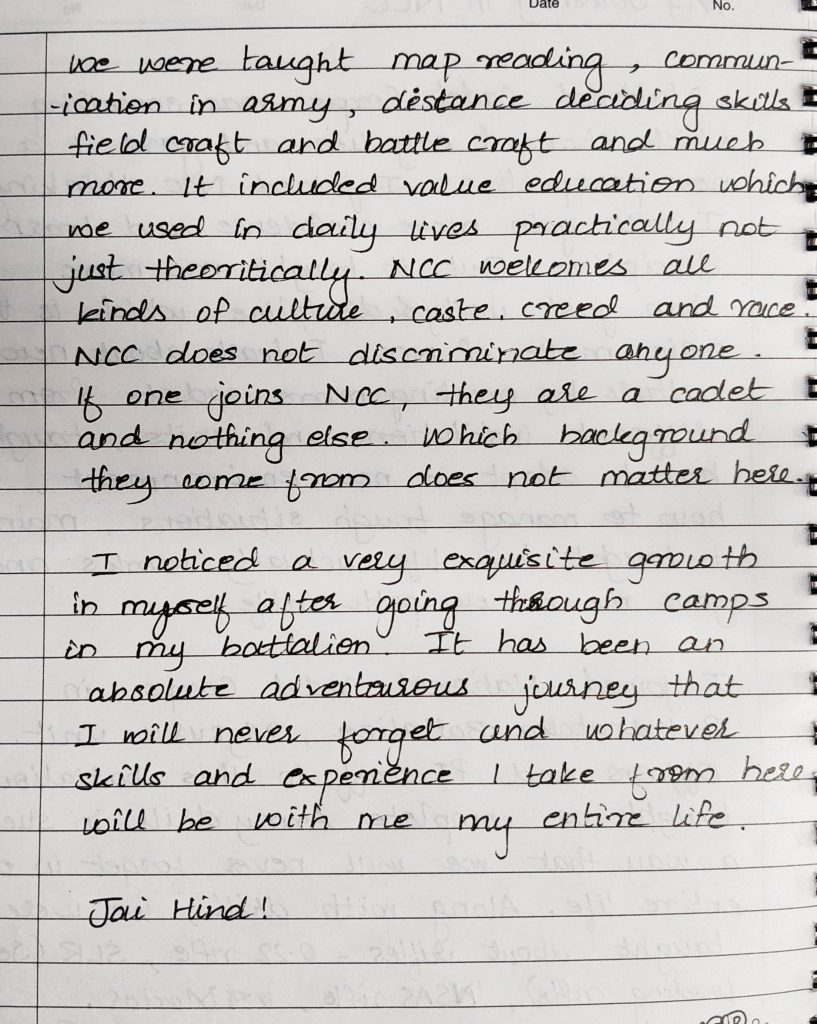 Date No.
we were taught map reading, commun-
-ication in army, distance deciding skills
field craft and battle craft and much
more. It included value education which
we used in daily lives practically not
just theoritically. NCC welcomes all
kinds of culture, caste, creed and race.
NCC does not discriminate anyone.
If one joins NCC, they are a cadet
and nothing else. Which background
they come from does not matter here.
I noticed a very exquisite growth
in myself after going through camps
in my battalion. It has been an
absolute adventourous journey that
I will never forget and whatever
skills and experience I take from here
will be with me my entire life.
Jai Hind!